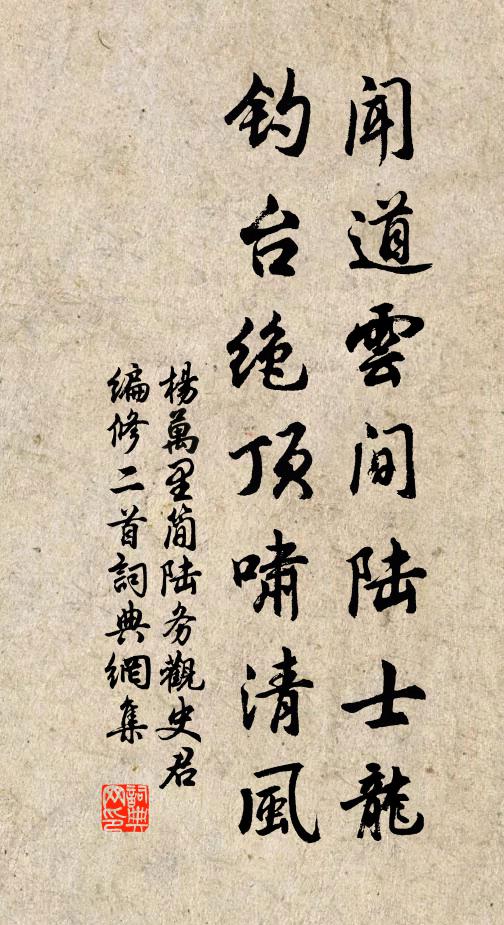 闻道雲间陆士龍
钓台绝顶啸清風
楊萬里简陆务觀史君
编修二首詞典網集
詞典
网印